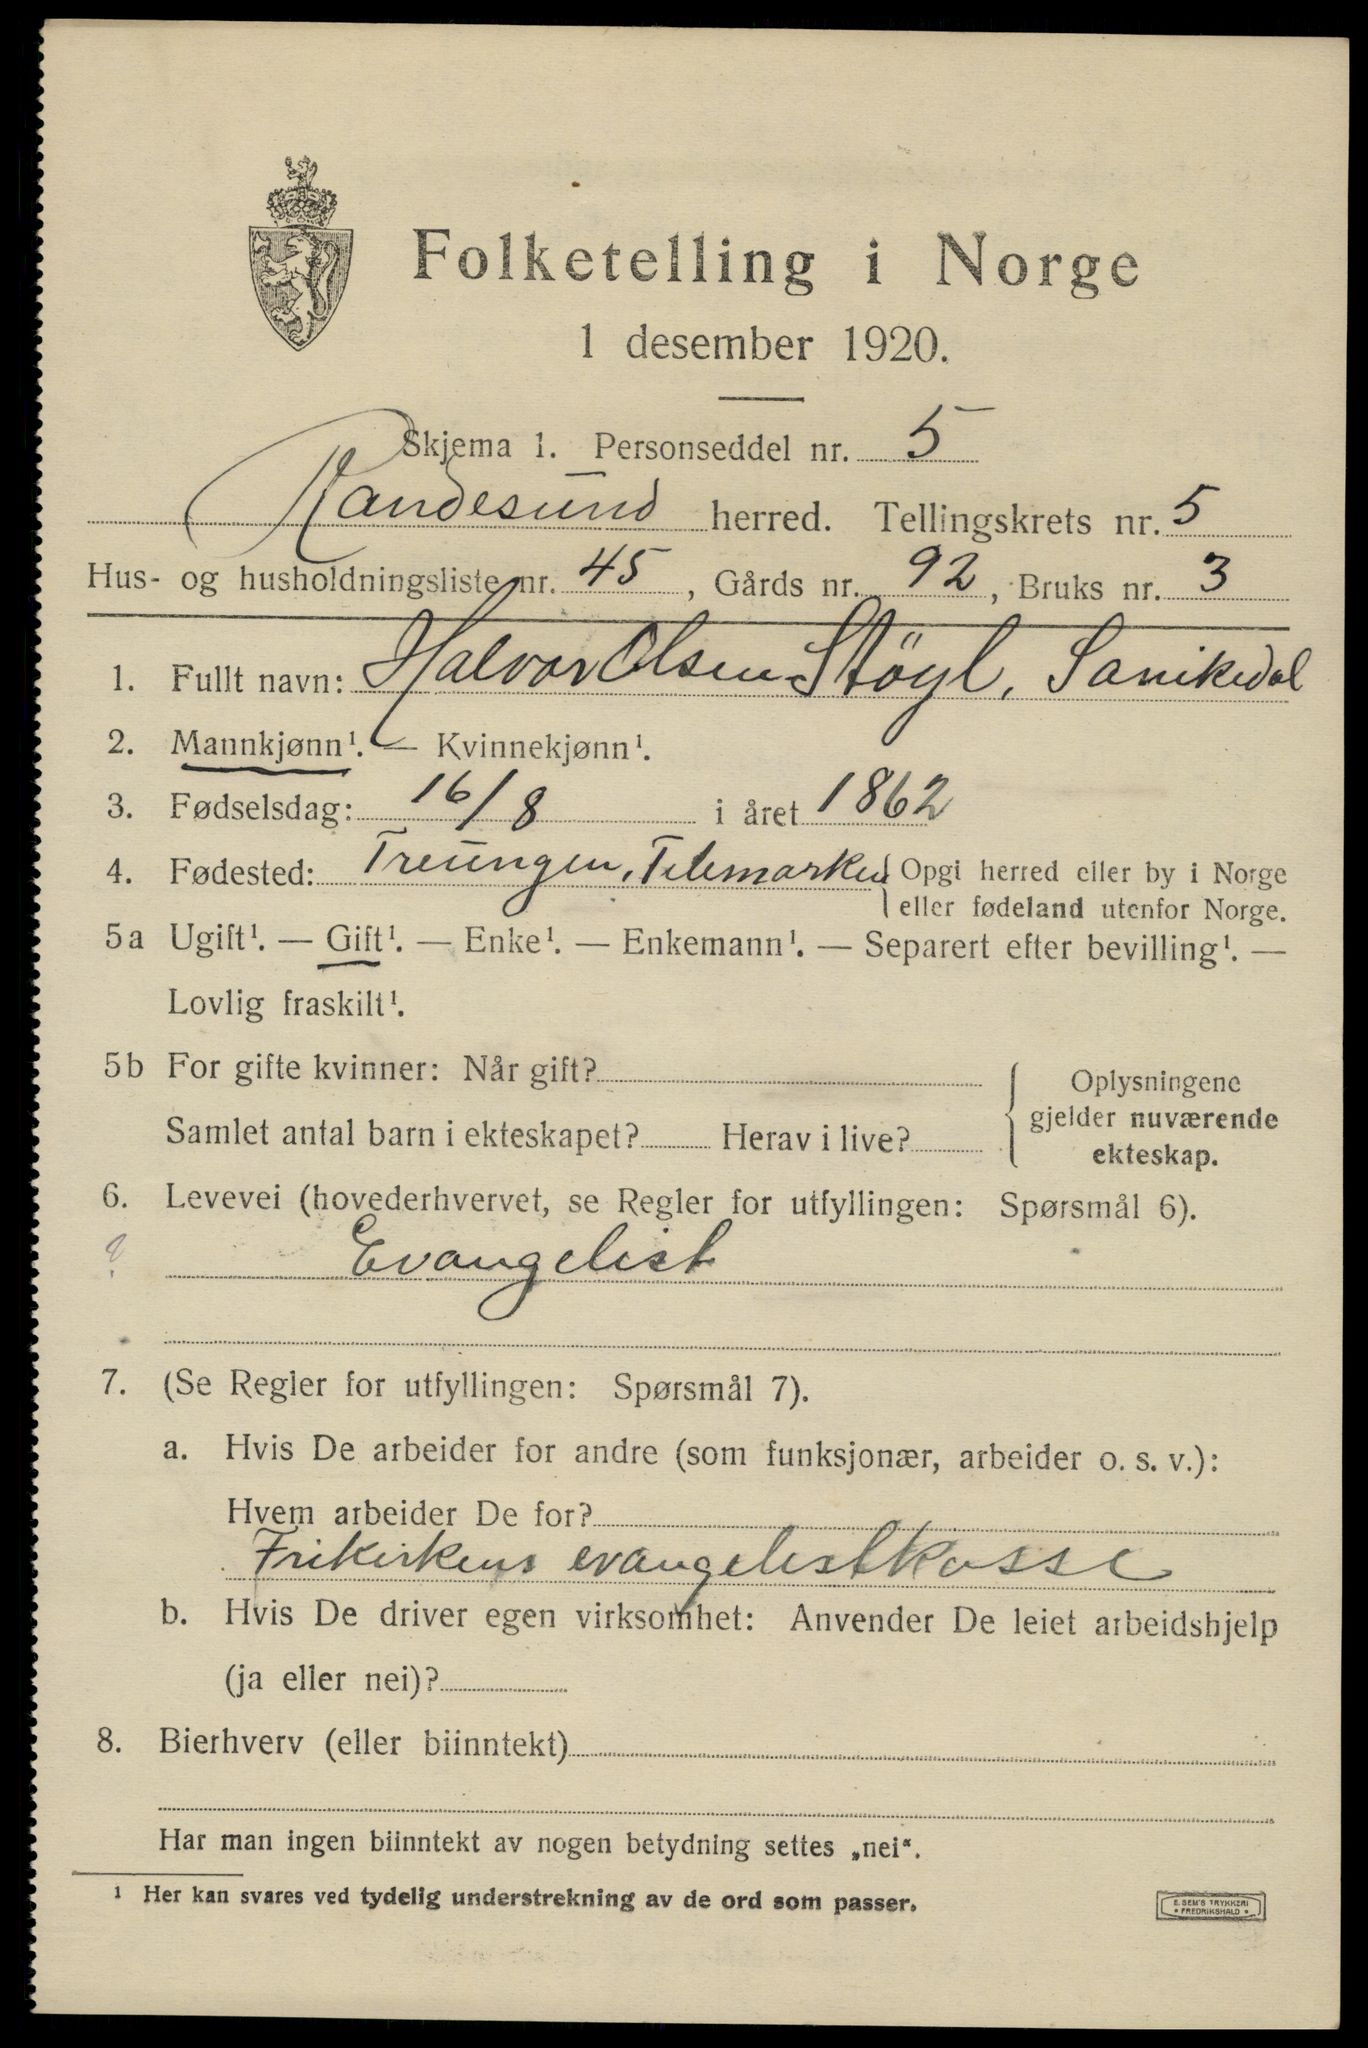 Folketelling i Norge
1 desember 1920.
Skjema 1. Personseddel nr. 5
Randesund herred. Tellingskrets nr. 5
Hus- og husholdningsliste nr. 45, Gårds nr. 92, Bruks nr. 3
1. Fullt navn: Halvor Olsen Støyl, Sanikedal
2. Mannkjønn¹. — Kvinnekjønn¹.
3. Fødselsdag: 16/8 i året 1862
4. Fødested: Treungen, Telemarken { Opgi herred eller by i Norge
eller fødeland utenfor Norge.
5a Ugift¹. — Gift¹. — Enke¹. — Enkemann¹. — Separert efter bevilling¹. —
Lovlig fraskilt¹.
5b For gifte kvinner: Når gift? { Oplysningene
gjelder nuværende
Samlet antal barn i ekteskapet? Herav i live?
ekteskap.
6. Levevei (hovederhvervet, se Regler for utfyllingen: Spørsmål 6).
Evangelist
7. (Se Regler for utfyllingen: Spørsmål 7).
a. Hvis De arbeider for andre (som funksjonær, arbeider o. s. v.):
Hvem arbeider De for?
Frikirkens evangelistkasse
b. Hvis De driver egen virksomhet: Anvender De leiet arbeidshjelp
(ja eller nei)?
8. Bierhverv (eller biinntekt)
Har man ingen biinntekt av nogen betydning settes „nei“.
¹ Her kan svares ved tydelig understrekning av de ord som passer.
E. SEM'S TRYKKERI
• FREDRIKSHALD •